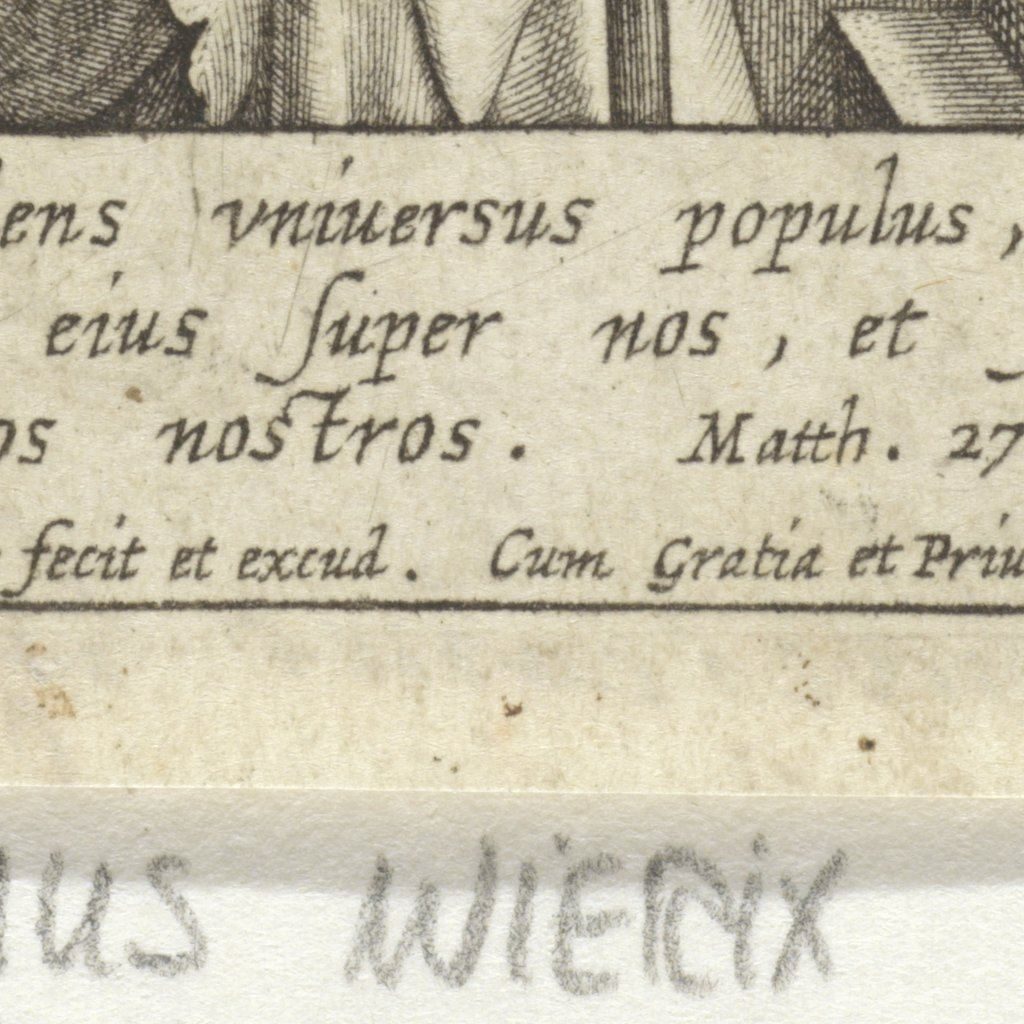 ens vniuersus populus,
eius ſuper nos, et
os nostros. Matth. 27
fecit et excud. Cum Gratia et Priu
US WIERIX